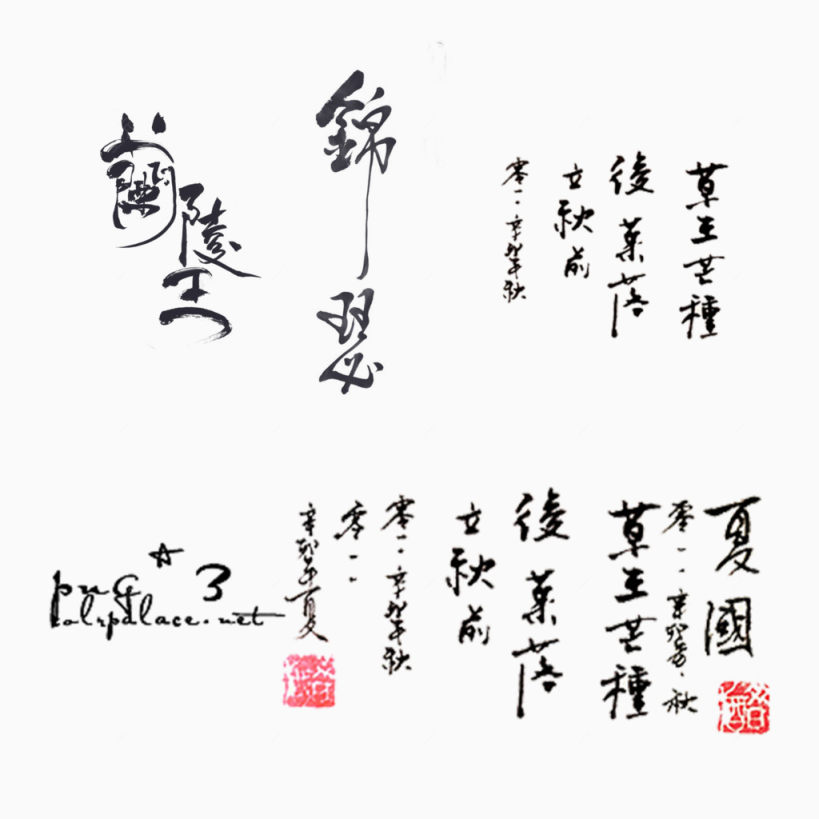 蘭陵王
錦瑟
草生芒種
後葉落
立秋前
零一一辛卯年秋
夏國
零一一辛卯年秋
草生芒種
後葉落
立秋前
零一一辛卯年秋
零一一
辛卯年夏
png☆3